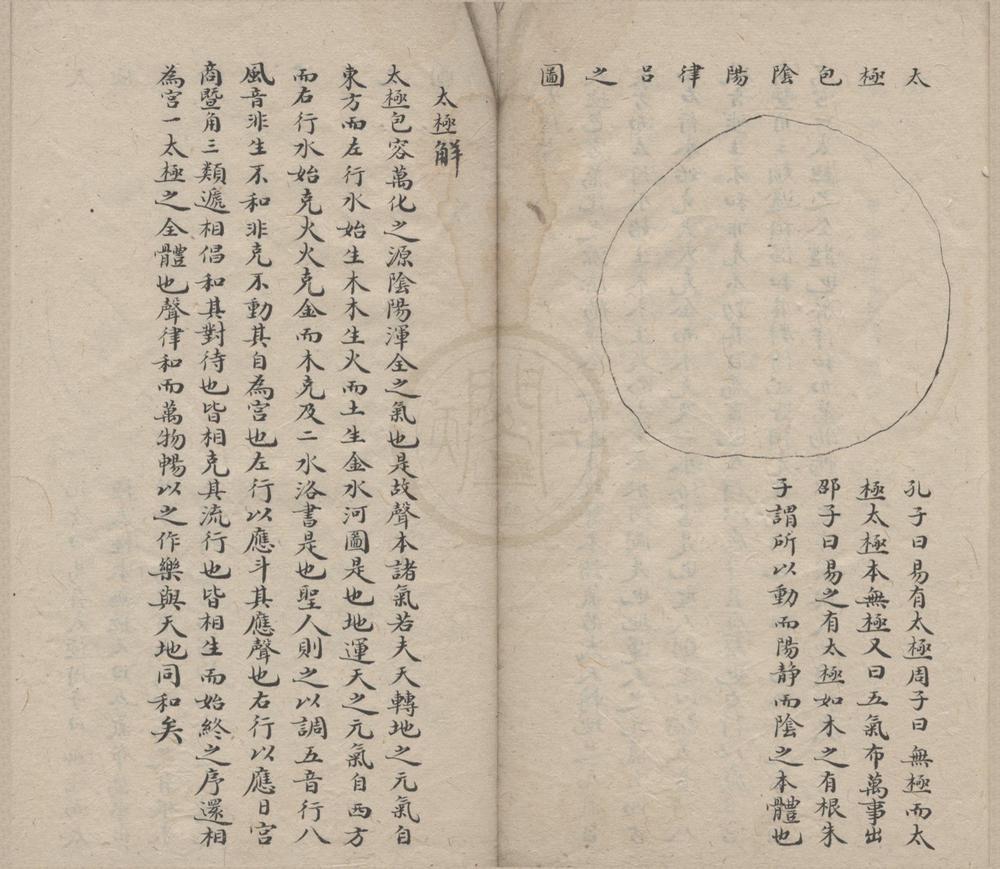 太極包陰陽律呂之圖
孔子曰易有太極周子曰無極而太
極太極本無極又曰五氣布萬事出
邵子曰易之有太極如木之有根朱
子謂所以動而陽静而陰之本體也
太極解
太極包容萬化之源陰陽渾全之氣也是故聲本諸氣若夫天轉地之元氣自
東方而左行水始生木木生火而土生金水河圖是也地運天之元氣自西方
而右行水始克火火克金而木克及二水洛書是也聖人則之以調五音行八
風音非生不和非克不動其自為宮也左行以應斗其應聲也右行以應日宮
商暨角三類遞相倡和其對待也皆相克其流行也皆相生而始終之序還相
為宮一太極之全體也聲律和而萬物暢以之作樂與天地同和矣